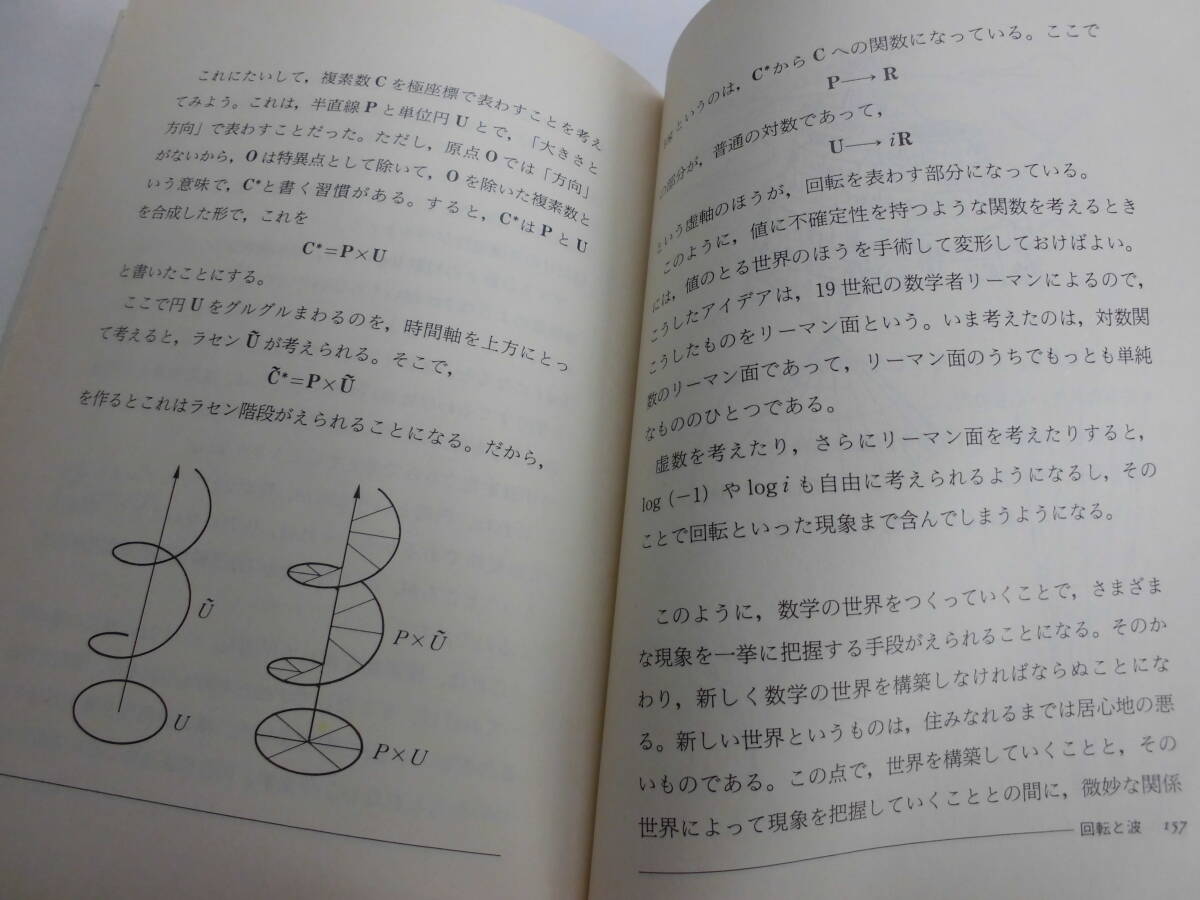 これにたいして，複素数Cを極座標で表わすことを考え
てみよう。これは，半直線Pと単位円Uとで，「大きさと
方向」で表わすことだった。ただし，原点Oでは「方向」
がないから，Oは特異点として除いて，Oを除いた複素数と
いう意味で，C*と書く習慣がある。すると，C*はPとU
を合成した形で，これを
C*=P×U
と書いたことにする。
ここで円Uをグルグルまわるのを，時間軸を上方にとっ
て考えると，ラセンŨが考えられる。そこで，
C̃*=P×Ũ
を作るとこれはラセン階段がえられることになる。だから，
Ũ
U
P×Ũ
P×U
というのは，C*からCへの関数になっている。ここで
P⟶R
の部分が，普通の対数であって，
U⟶iR
という虚軸のほうが，回転を表わす部分になっている。
このように，値に不確定性を持つような関数を考えるとき
には，値のとる世界のほうを手術して変形しておけばよい。
こうしたアイデアは，19世紀の数学者リーマンによるので，
こうしたものをリーマン面という。いま考えたのは，対数関
数のリーマン面であって，リーマン面のうちでもっとも単純
なもののひとつである。
虚数を考えたり，さらにリーマン面を考えたりすると，
log (−1) やlog i も自由に考えられるようになるし，その
ことで回転といった現象まで含んでしまうようになる。
このように，数学の世界をつくっていくことで，さまざま
な現象を一挙に把握する手段がえられることになる。そのか
わり，新しく数学の世界を構築しなければならぬことにな
る。新しい世界というものは，住みなれるまでは居心地の悪
いものである。この点で，世界を構築していくことと，その
世界によって現象を把握していくこととの間に，微妙な関係
回転と波 157